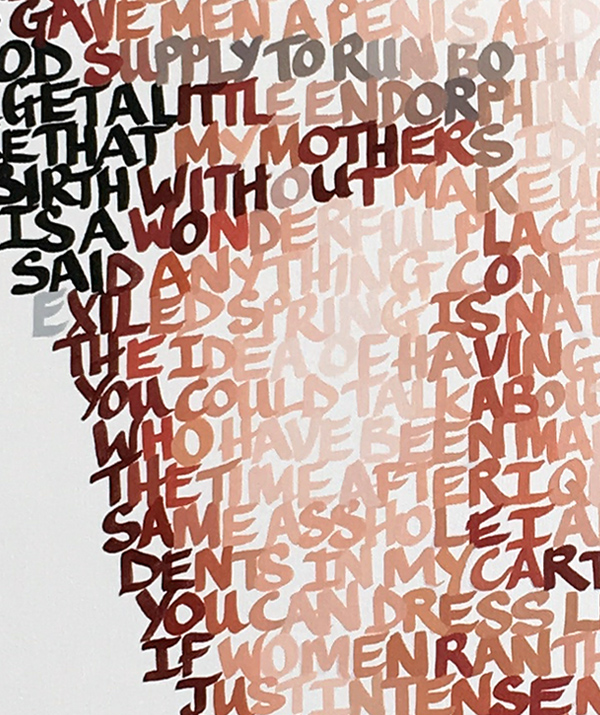 GAVE MEN A PENIS AND
OD SUPPLY TO RUN BOTH A
GET A LITTLE ENDORPHIN
E THAT MY MOTHERS IDE
BIRTH WITHOUT MAKE U
IS A WONDERFUL PLACE
SAID ANYTHING CONT
EXILED SPRING IS NAT
THE IDEA OF HAVING
YOU COULD TALK ABOU
WHO HAVE BEEN MAR
THE TIME AFTER I QU
SAME ASSHOLE I A
DENTS IN MY CART
YOU CAN DRESS L
IF WOMEN RAN TH
JUST INTENSE N